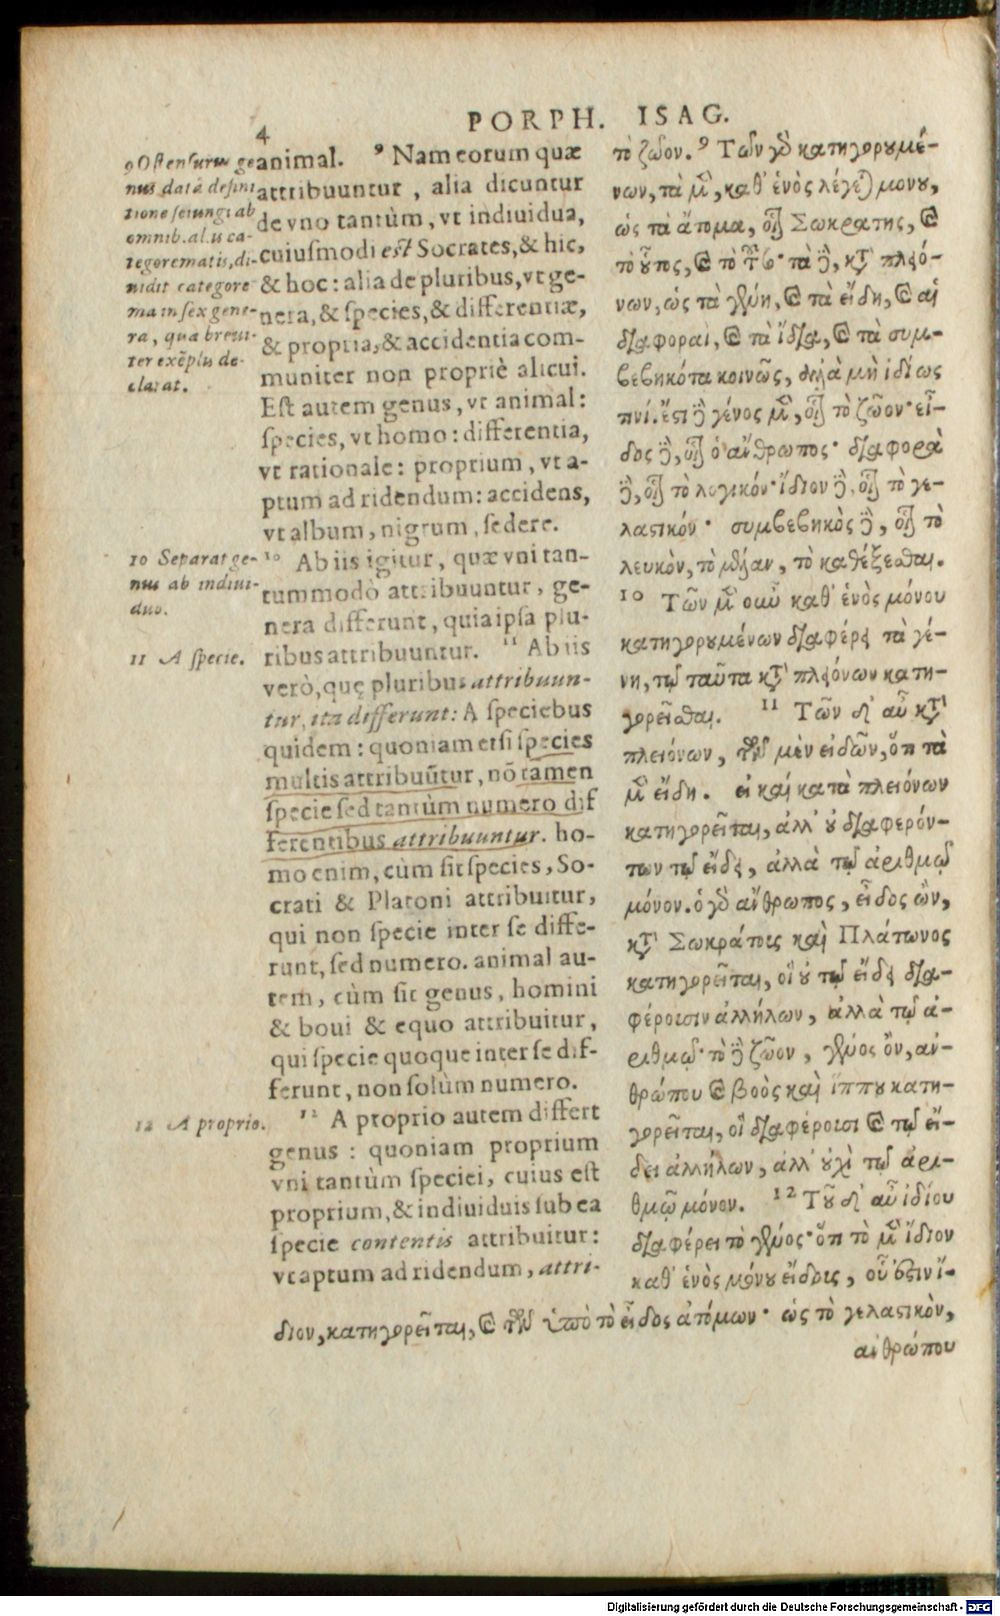 4
PORPH. ISAG.
9 Ostensurus ge-
nus datā defini
tione seiungi ab
omnib. aliis ca-
tegorematis, di-
uidit categore
ma in sex gene-
ra, quæ breui-
ter exēplis de-
clarat.
10 Separat ge-
nus ab indiui-
duo.
11 A specie.
12 A proprio.
animal. ⁹ Nam eorum quæ
attribuuntur, alia dicuntur
de vno tantùm, vt indiuidua,
cuiusmodi est Socrates, & hic,
& hoc: alia de pluribus, vt ge-
nera, & species, & differentiæ,
& propria, & accidentia com-
muniter non propriè alicui.
Est autem genus, vt animal:
species, vt homo: differentia,
vt rationale: proprium, vt a-
ptum ad ridendum: accidens,
vt album, nigrum, sedere.
¹⁰ Ab iis igitur, quæ vni tan-
tummodò attribuuntur, ge-
nera differunt, quia ipsa plu-
ribus attribuuntur. ¹¹ Ab iis
verò, quę pluribus attribuun-
tur, ita differunt: A speciebus
quidem: quoniam etsi species
multis attribuūtur, nō tamen
specie sed tantùm numero dif
ferentibus attribuuntur. ho-
mo enim, cùm sit species, So-
crati & Platoni attribuitur,
qui non specie inter se diffe-
runt, sed numero. animal au-
tem, cùm sit genus, homini
& boui & equo attribuitur,
qui specie quoque inter se dif-
ferunt, non solùm numero.
¹² A proprio autem differt
genus: quoniam proprium
vni tantùm speciei, cuius est
proprium, & indiuiduis sub ea
specie contentis attribuitur:
vt aptum ad ridendum, attri-
τὸ ζῶον. ⁹ Τῶν γὸ κατηγορουμέ-
νων, τὰ μὲν, καθ' ἑνὸς λέγεται μόνου,
ὡς τὰ ἄτομα, οἷον Σωκράτης, καὶ
τὸ οὗτος, καὶ τὸ τοῦτο· τὰ δὲ, κατὰ πλειό-
νων, ὡς τὰ γένη, καὶ τὰ εἴδη, καὶ αἱ
διαφοραὶ, καὶ τὰ ἴδια, καὶ τὰ συμ-
βεβηκότα κοινῶς, ἀλλὰ μὴ ἰδίως
τινί. ἔστι δὲ γένος μὲν, οἷον τὸ ζῶον· εἶ-
δος δὲ, οἷον ὁ ἄνθρωπος· διαφορὰ
δὲ, οἷον τὸ λογικόν· ἴδιον δὲ, οἷον τὸ γε-
λαστικόν· συμβεβηκὸς δὲ, οἷον τὸ
λευκὸν, τὸ μέλαν, τὸ καθέζεσθαι.
10 Τῶν μὲν οὖν καθ' ἑνὸς μόνου
κατηγορουμένων διαφέρει τὰ γέ-
νη, τῷ ταῦτα κατὰ πλειόνων κατη-
γορεῖσθαι. 11 Τῶν δ' αὖ κατὰ
πλειόνων, τῶν μὲν εἰδῶν, ὅτι τὰ
μὲν εἴδη. εἰ καὶ κατὰ πλειόνων
κατηγορεῖται, ἀλλ' οὐ διαφερόν-
των τῷ εἴδει, ἀλλὰ τῷ ἀριθμῷ
μόνον. ὁ γὸ ἄνθρωπος, εἶδος ὢν,
κατὰ Σωκράτους καὶ Πλάτωνος
κατηγορεῖται, οἳ οὐ τῷ εἴδει δια-
φέρουσιν ἀλλήλων, ἀλλὰ τῷ ἀ-
ριθμῷ· τὸ δὲ ζῶον, γένος ὂν, ἀν-
θρώπου καὶ βοὸς καὶ ἵππου κατη-
γορεῖται, οἳ διαφέρουσι καὶ τῷ εἴ-
δει ἀλλήλων, ἀλλ' οὐχὶ τῷ ἀρι-
θμῷ μόνον. 12 Τοῦ δ' αὖ ἰδίου
διαφέρει τὸ γένος· ὅτι τὸ μὲν ἴδιον
καθ' ἑνὸς μόνου εἴδους, οὗ ἐστιν ἴ-
διον, κατηγορεῖται, καὶ τῶν ὑπὸ τὸ εἶδος ἀτόμων· ὡς τὸ γελαστικὸν,
ἀνθρώπου
Digitalisierung gefördert durch die Deutsche Forschungsgemeinschaft - DFG